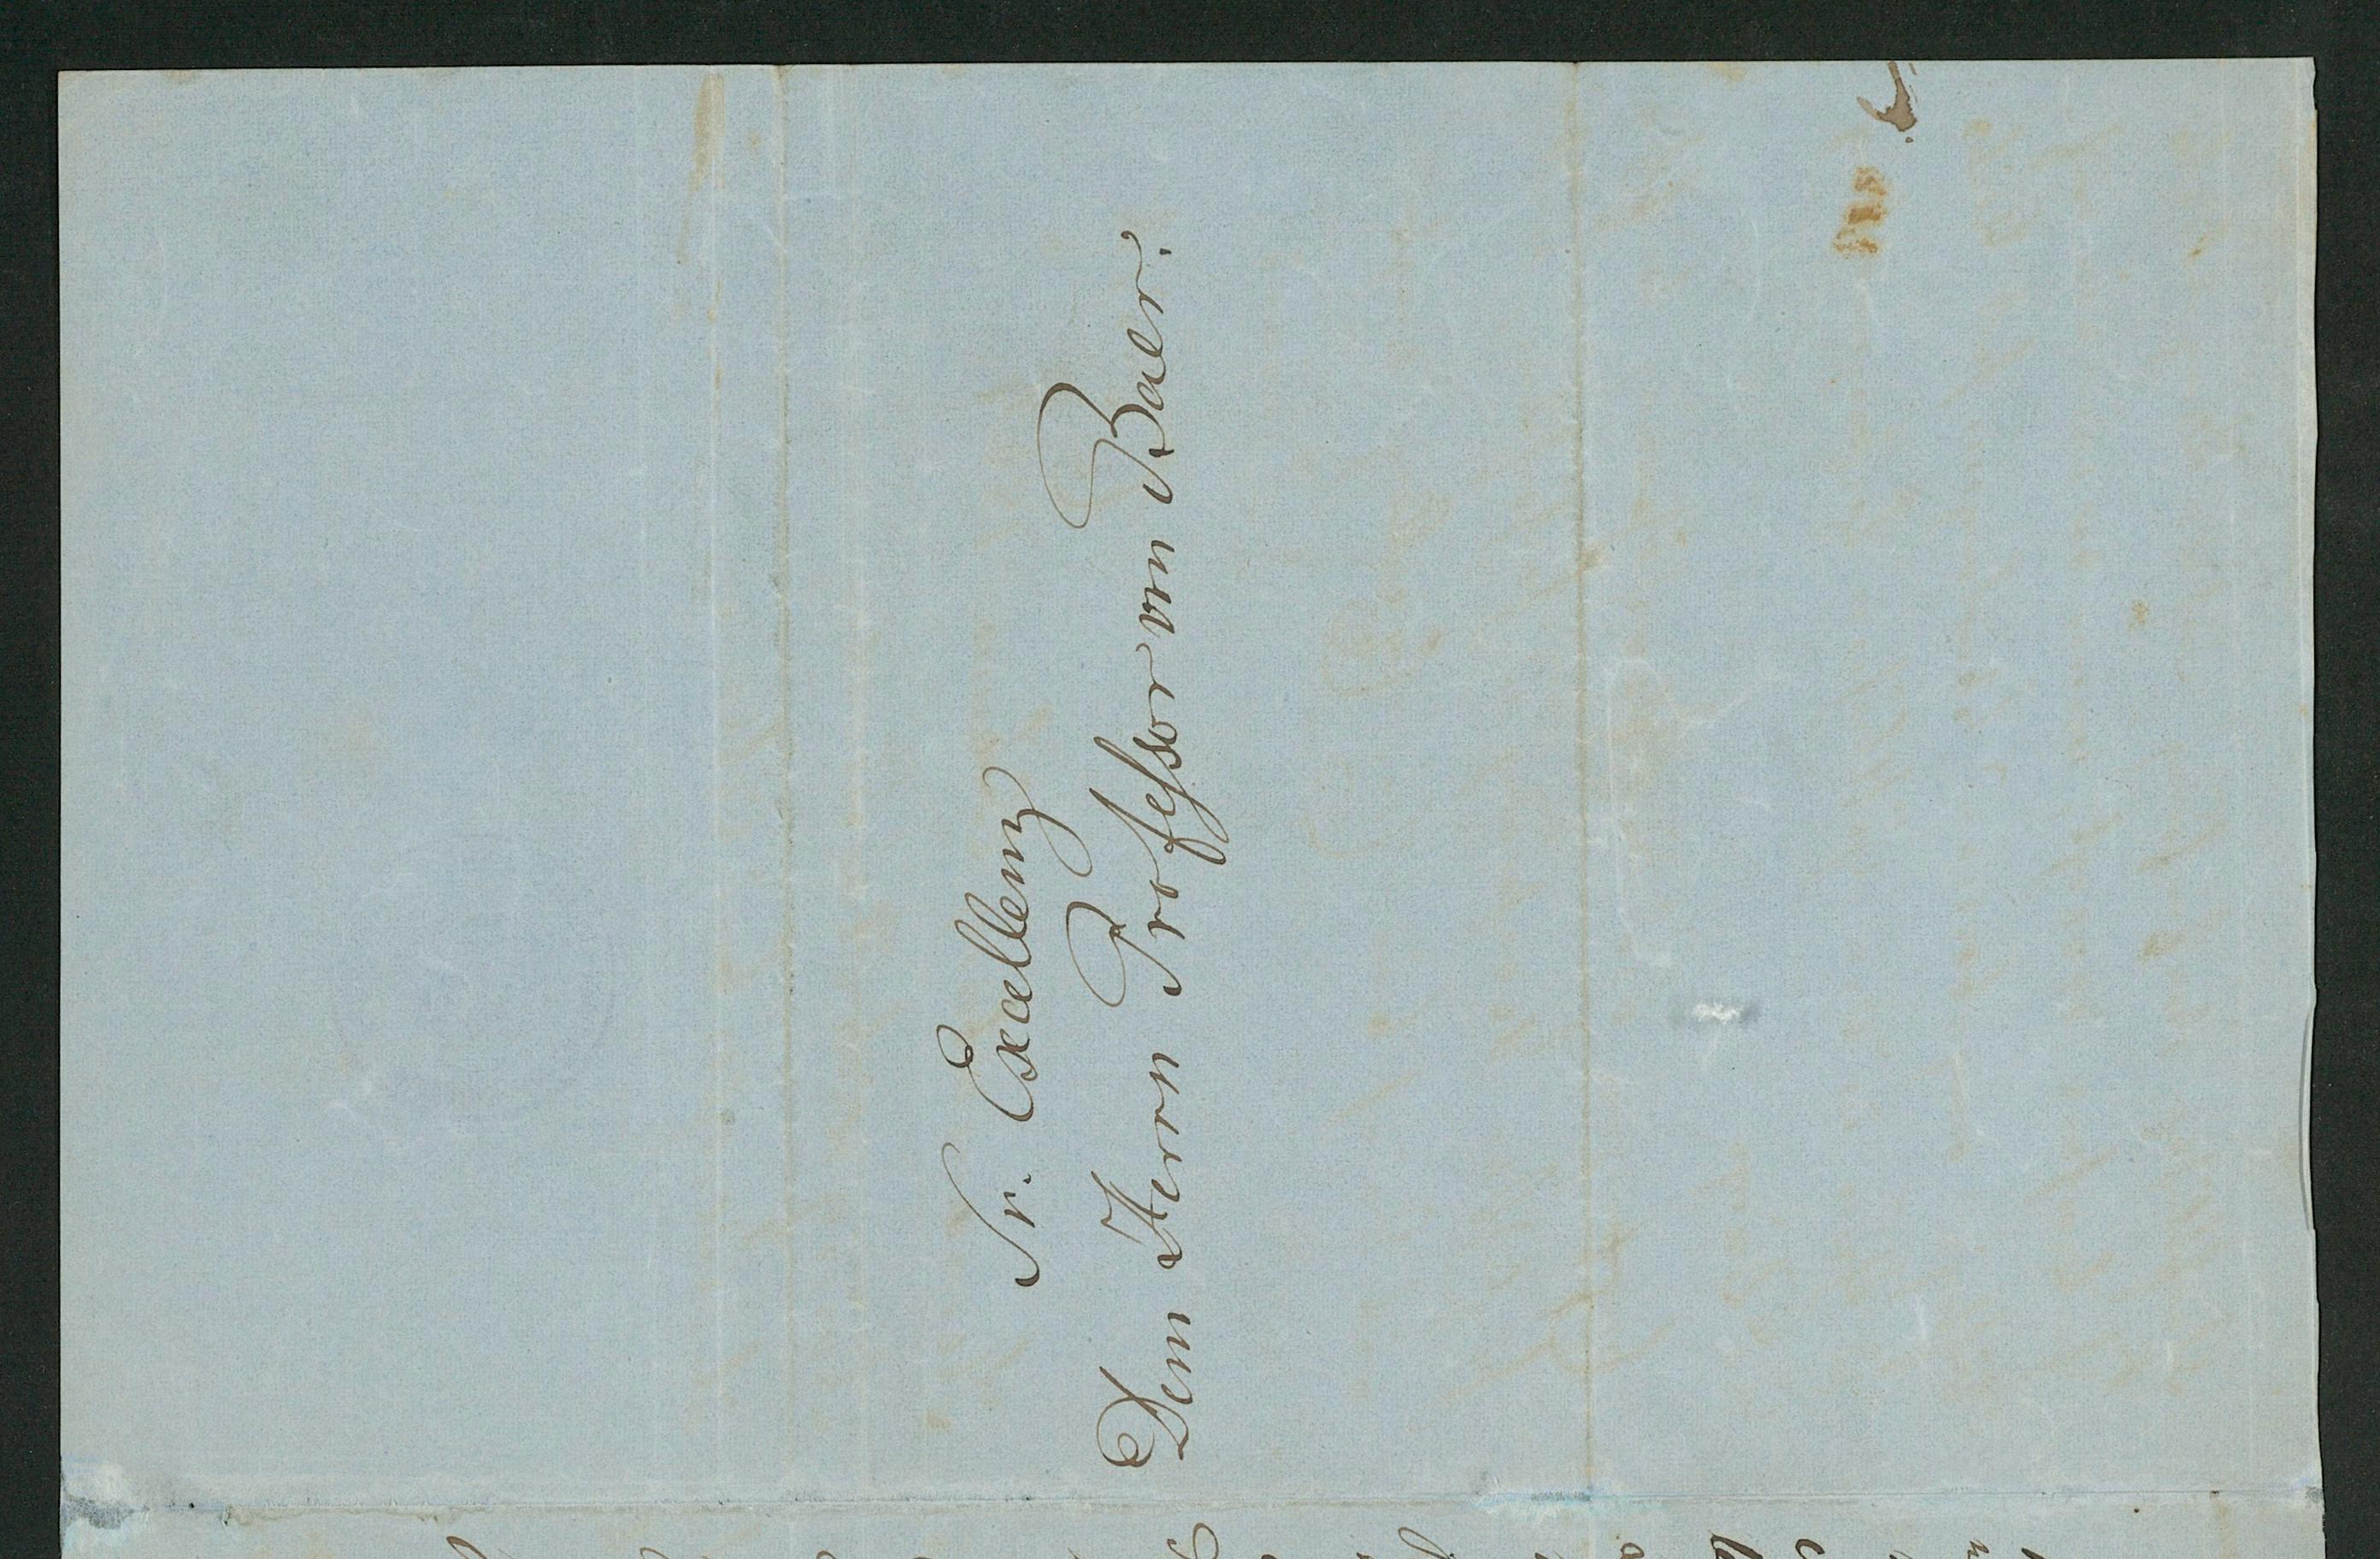 Sr. Excellenz
Dem Herrn Professor von Baer.